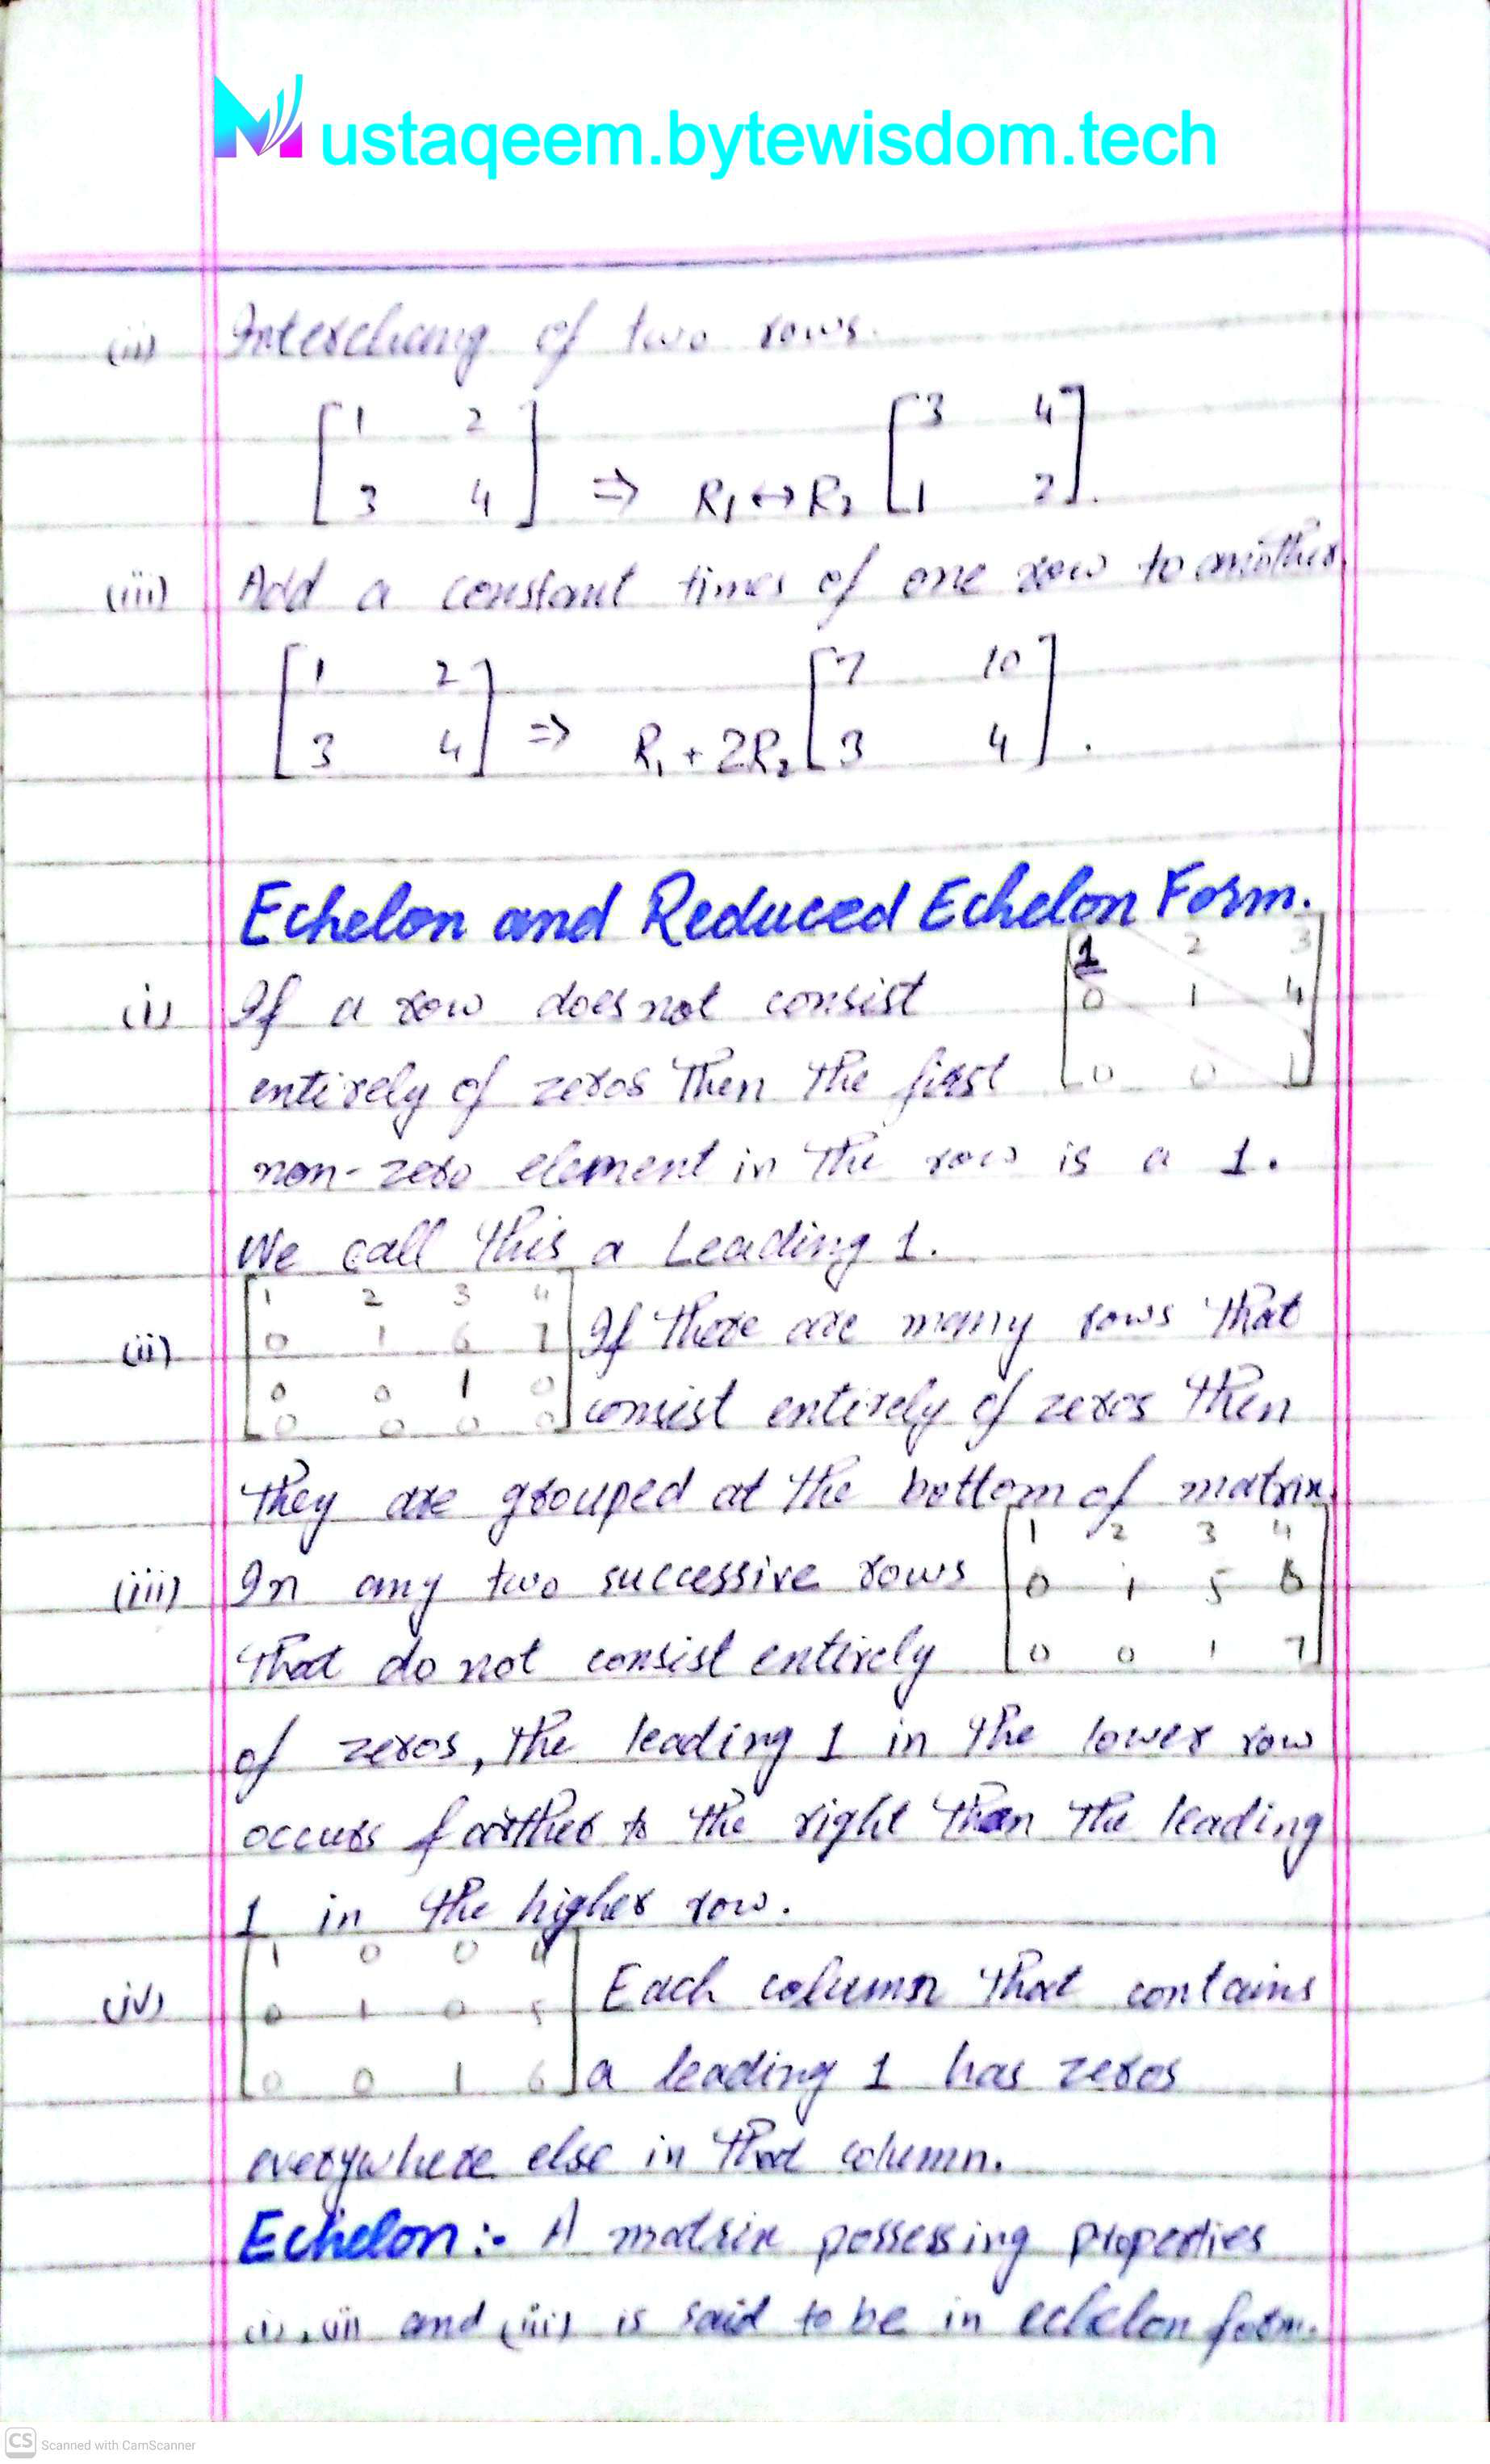 Mustaqeem.bytewisdom.tech
(ii) Interchang of two rows.
[1 2
3 4] ⇒ R₁↔R₂ [3 4
1 2].
(iii) Add a constant times of one row to another.
[1 2
3 4] ⇒ R₁+2R₂ [7 10
3 4].
Echelon and Reduced Echelon Form.
[1 2 3
0 1 4
0 0 1]
(i) If a row does not consist
entirely of zeros then the first
non-zero element in the row is a 1.
We call this a Leading 1.
[1 2 3 4
0 1 6 7
0 0 1 0
0 0 0 0]
(ii) If there are many rows that
consist entirely of zeros then
they are grouped at the bottom of matrix.
[1 2 3 4
0 1 5 6
0 0 1 7]
(iii) In any two successive rows
that do not consist entirely
of zeros, the leading 1 in the lower row
occurs farther to the right than the leading
1 in the higher row.
[1 0 0 4
0 1 0 5
0 0 1 6]
(iv) Each column that contains
a leading 1 has zeros
everywhere else in that column.
Echelon:- A matrix possessing properties
(i), (ii) and (iii) is said to be in echelon form.
CS Scanned with CamScanner